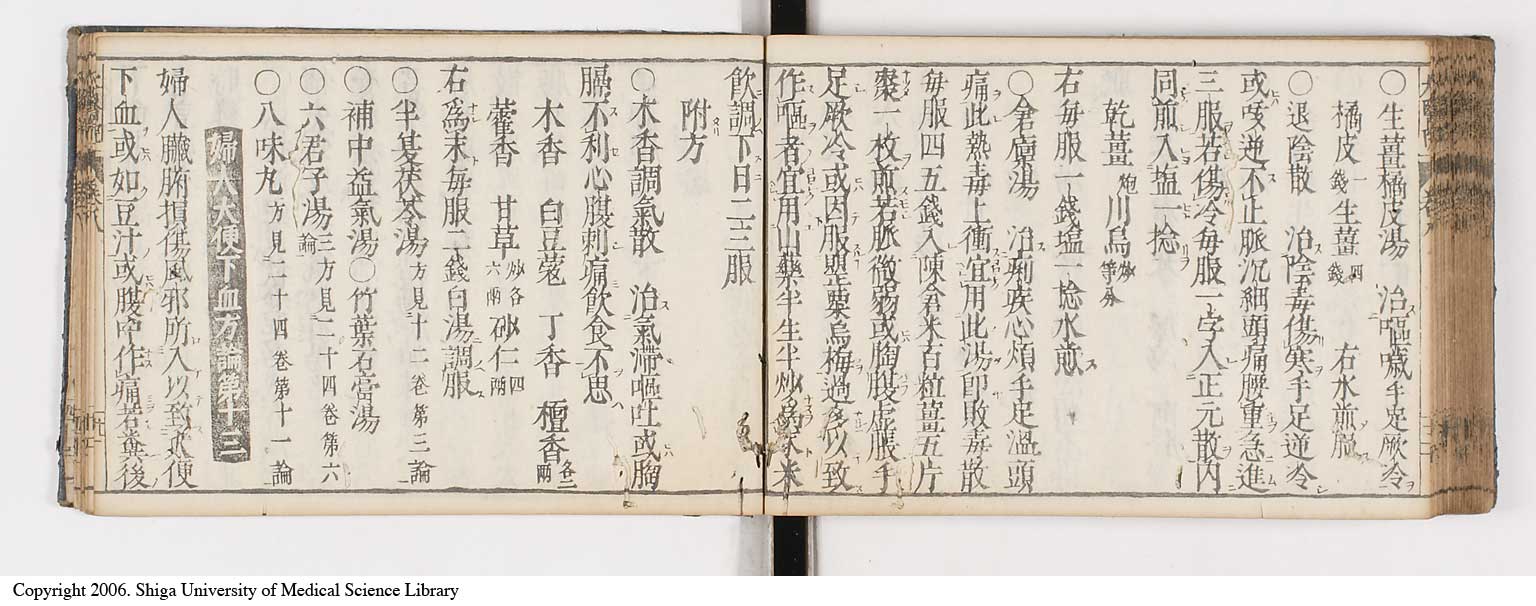 〇生薑橘皮湯　治嘔噦手足厥冷
橘皮一錢生薑四錢　右水煎服
〇退陰散　治陰毒傷寒手足逆冷
或咳逆不止脈沉細頭痛腰重急進
三服若傷冷每服一字入正元散內
同煎入塩一捻
乾薑炮川烏炒等分
右每服一錢塩一捻水煎
〇倉廩湯　治痢疾心煩手足溫頭
痛此熱毒上衝宜用此湯即敗毒散
每服四五錢入陳倉米百粒薑五片
棗一枚煎若脈微弱或胸腹虛脹手
足厥冷或因服罌粟烏梅過多以致
作嘔者宜用山藥半生半炒為末米
飲調下日二三服
附方
〇木香調氣散　治氣滯嘔吐或胸
膈不利心腹刺痛飲食不思
木香　白豆蔻　丁香　檀香各二兩
藿香　甘草炒各六兩砂仁四兩
右為末每服二錢白湯調服
〇半夏茯苓湯方見十二卷第三論
〇補中益氣湯〇竹葉石膏湯
〇六君子湯三方見二十四卷第六論
〇八味丸方見二十四卷第十一論
婦人大便下血方論第十三
婦人臟腑損傷風邪所入以致大便
下血或如豆汁或腹中作痛若糞後
Copyright 2006. Shiga University of Medical Science Library